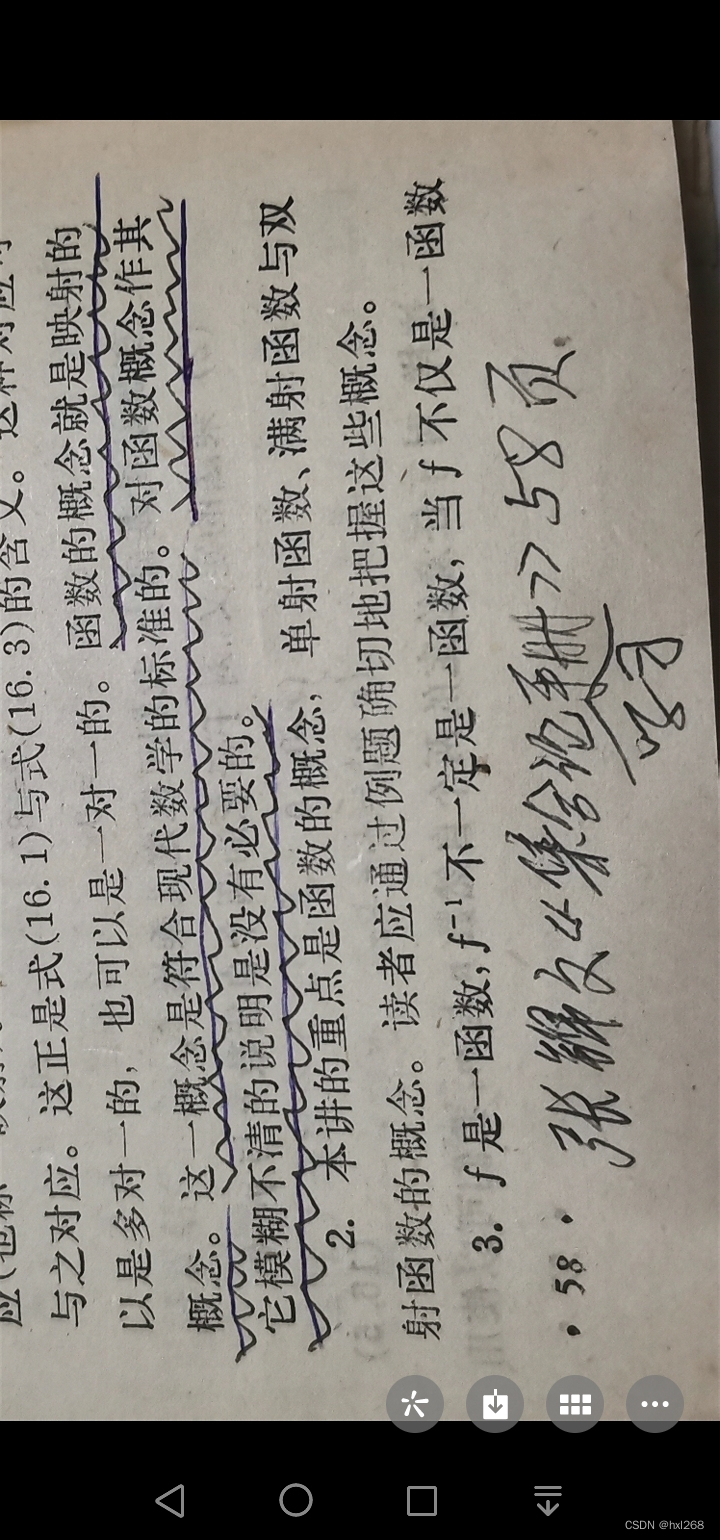 与之对应。这正是式(16.1)与式(16.3)的含义。这种对应可
以是多对一的,也可以是一对一的。函数的概念就是映射的
概念。这一概念是符合现代数学的标准的。对函数概念作其
它模糊不清的说明是没有必要的。
2. 本讲的重点是函数的概念,单射函数、满射函数与双
射函数的概念。读者应通过例题确切地把握这些概念。
3. f 是一函数,f⁻¹不一定是一函数,当 f 不仅是一函数
· 58 ·
张锦文《集合论 》58页
CSDN @hxl268